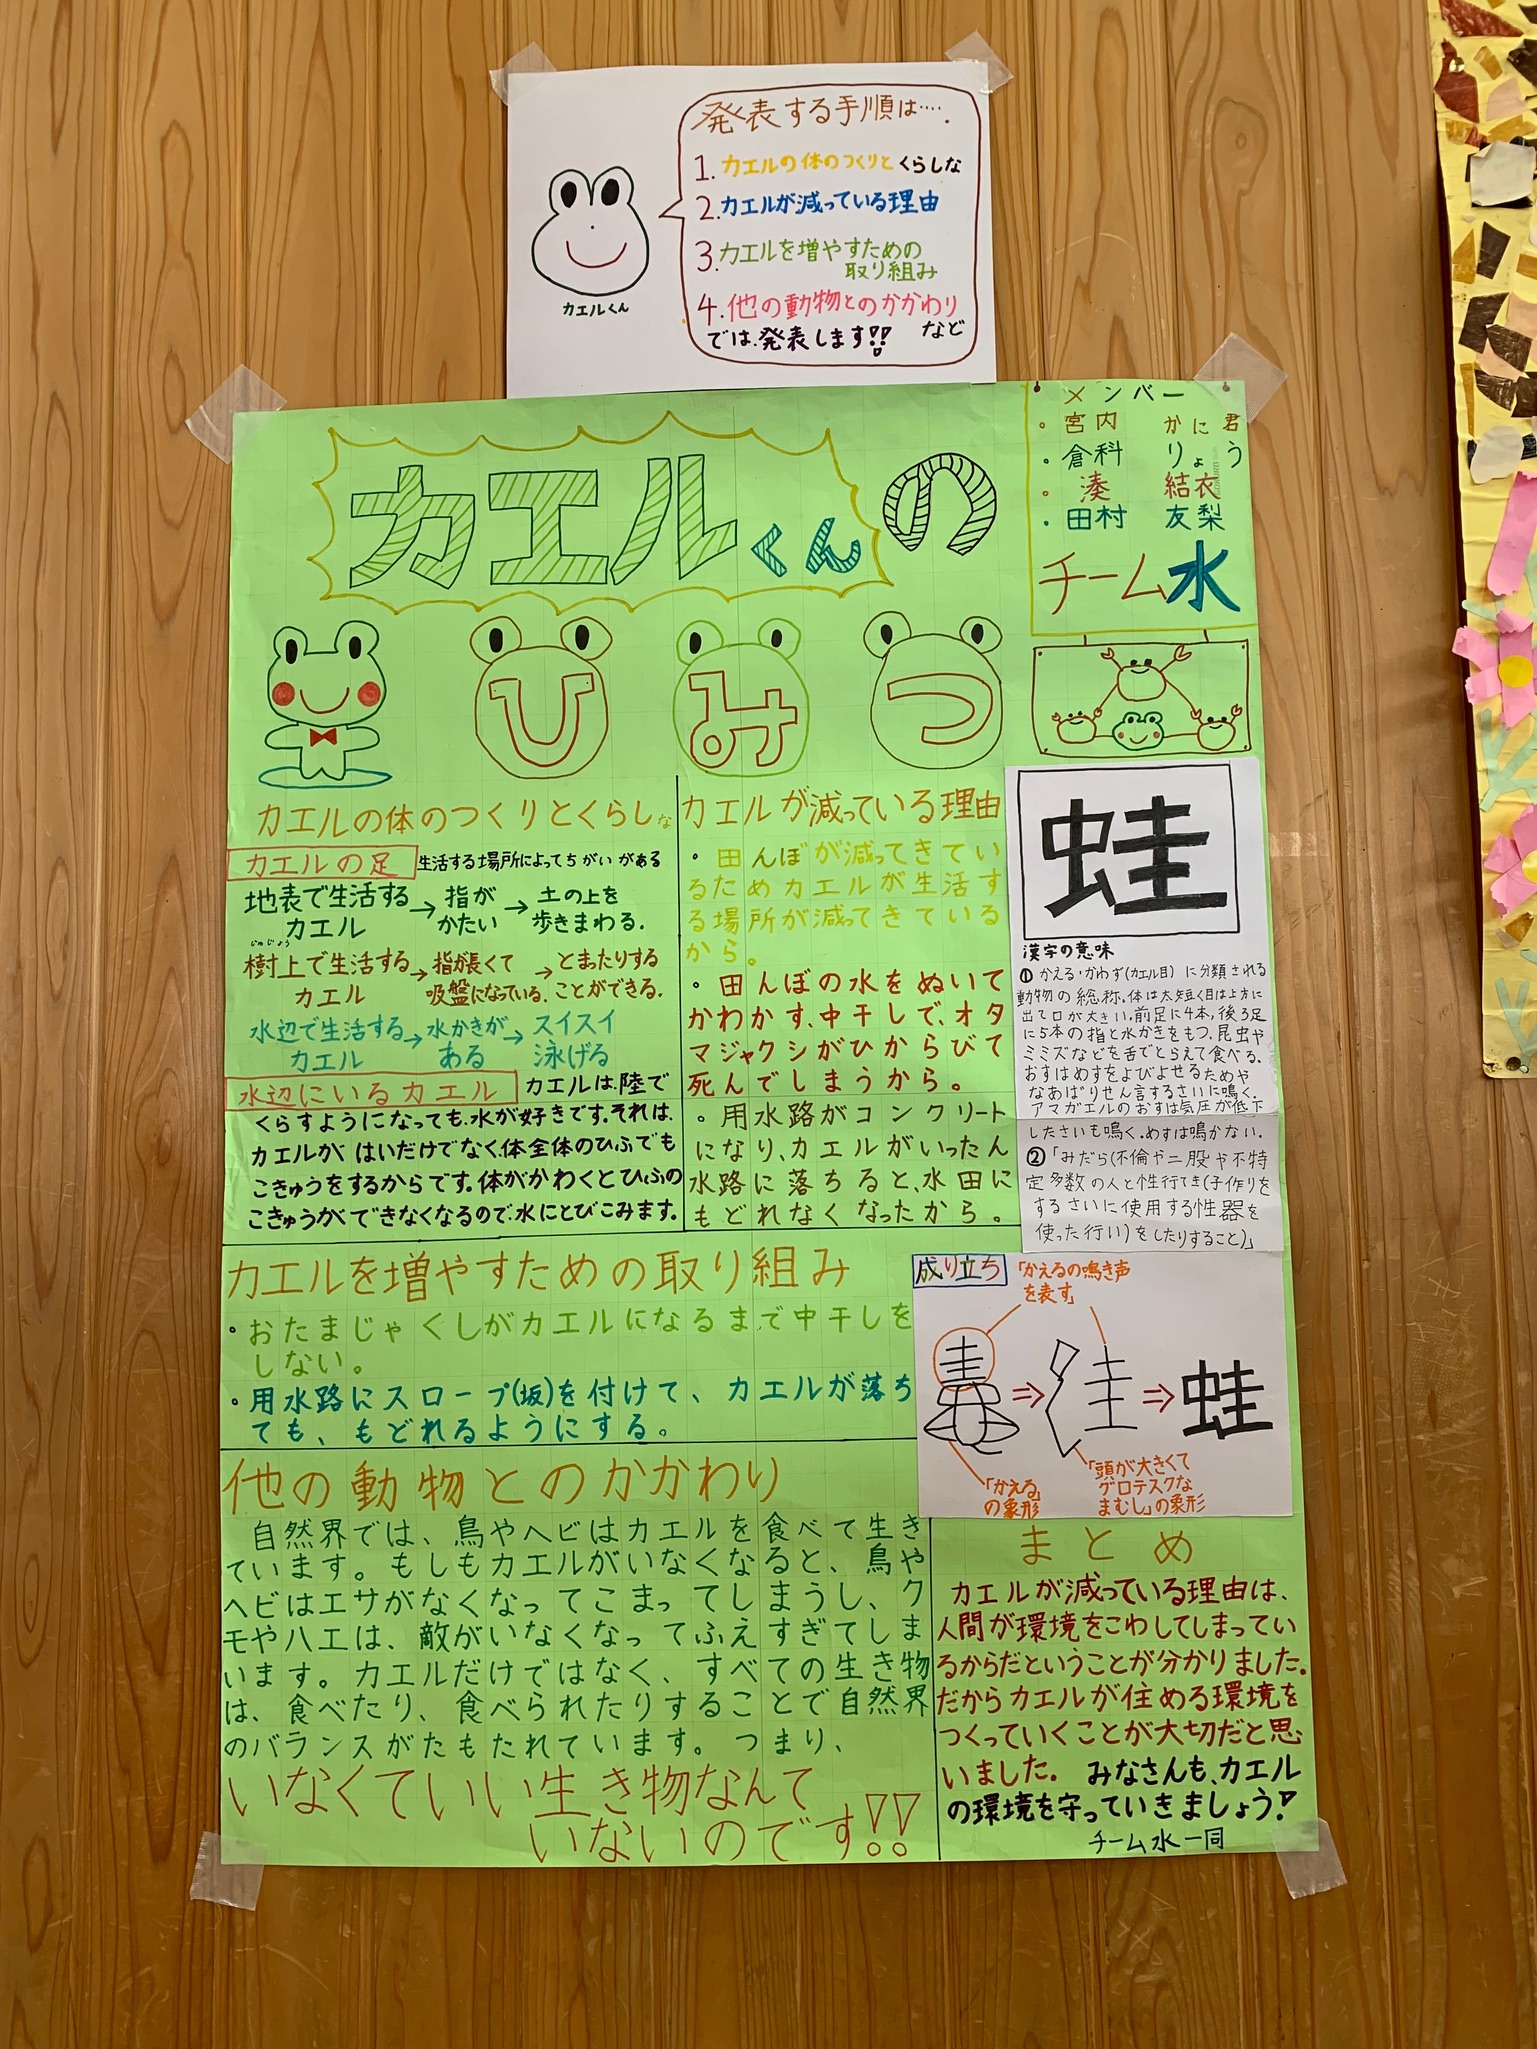 発表する手順は‥‥.
1.カエルの体のつくりとくらしな
2.カエルが減っている理由
3.カエルを増やすための
取り組み
4.他の動物とのかかわり
など
では.発表します!!
カエルくん
メンバー
・宮内 かに君
・倉科 りょう
・湊 結衣
・田村 友梨
チーム水
カエルくんの
ひみつ
カエルの体のつくりとくらしな
カエルの足 生活する場所によってちがいがある
地表で生活する→指が→土の上を
カエル かたい 歩きまわる.
じゅじょう
樹上で生活する→指が長くて→とまったりする
カエル 吸盤になっている. ことができる.
水辺で生活する→水かきが→スイスイ
カエル ある 泳げる
水辺にいるカエル カエルは、陸で
くらすようになっても、水が好きです。それは、
カエルが はいだけでなく、体全体のひふでも
こきゅうをするからです。体がかわくとひふの
こきゅうができなくなるので、水にとびこみます。
カエルが減っている理由
・田んぼが減ってきてい
るためカエルが生活す
る場所が減ってきている
から。
・田んぼの水をぬいて
かわかす、中干しで、オタ
マジャクシがひからびて
死んでしまうから。
・用水路がコンクリート
になり、カエルがいったん
水路に落ちると、水田に
もどれなくなったから。
蛙
漢字の意味
①かえる・かわず(カエル目)に分類される
動物の総称.体は太短く目は上方に
出て口が大きい.前足に4本,後ろ足
に5本の指と水かきをもつ.昆虫や
ミミズなどを舌でとらえて食べる.
おすはめすをよびよせるためや
なあばりせん言するさいに鳴く.
アマガエルのおすは気圧が低下
したさいも鳴く.めすは鳴かない.
②「みだら(不倫や二股や不特
定多数の人と性行てき(子作りを
するさいに使用する性器を
使った行い)をしたりすること)」
成り立ち
「かえるの鳴き声
を表す」
蛙
「かえる」
の象形
「頭が大きくて
グロテスクな
まむし」の象形
カエルを増やすための取り組み
・おたまじゃくしがカエルになるまで中干しを
しない。
・用水路にスロープ(坂)を付けて、カエルが落ち
ても、もどれるようにする。
他の動物とのかかわり
自然界では、鳥やヘビはカエルを食べて生き
ています。もしもカエルがいなくなると、鳥や
ヘビはエサがなくなってこまってしまうし、ク
モやハエは、敵がいなくなってふえすぎてしま
います。カエルだけではなく、すべての生き物
は、食べたり、食べられたりすることで自然界
のバランスがたもたれています。つまり、
いなくていい生き物なんて
いないのです!!
まとめ
カエルが減っている理由は、
人間が環境をこわしてしまってい
るからだということが分かりました。
だからカエルが住める環境を
つくっていくことが大切だと思
いました。みなさんも、カエル
の環境を守っていきましょう!
チーム水一同